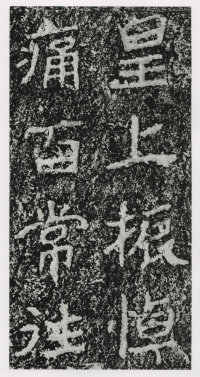 皇上振悼
痛百常往